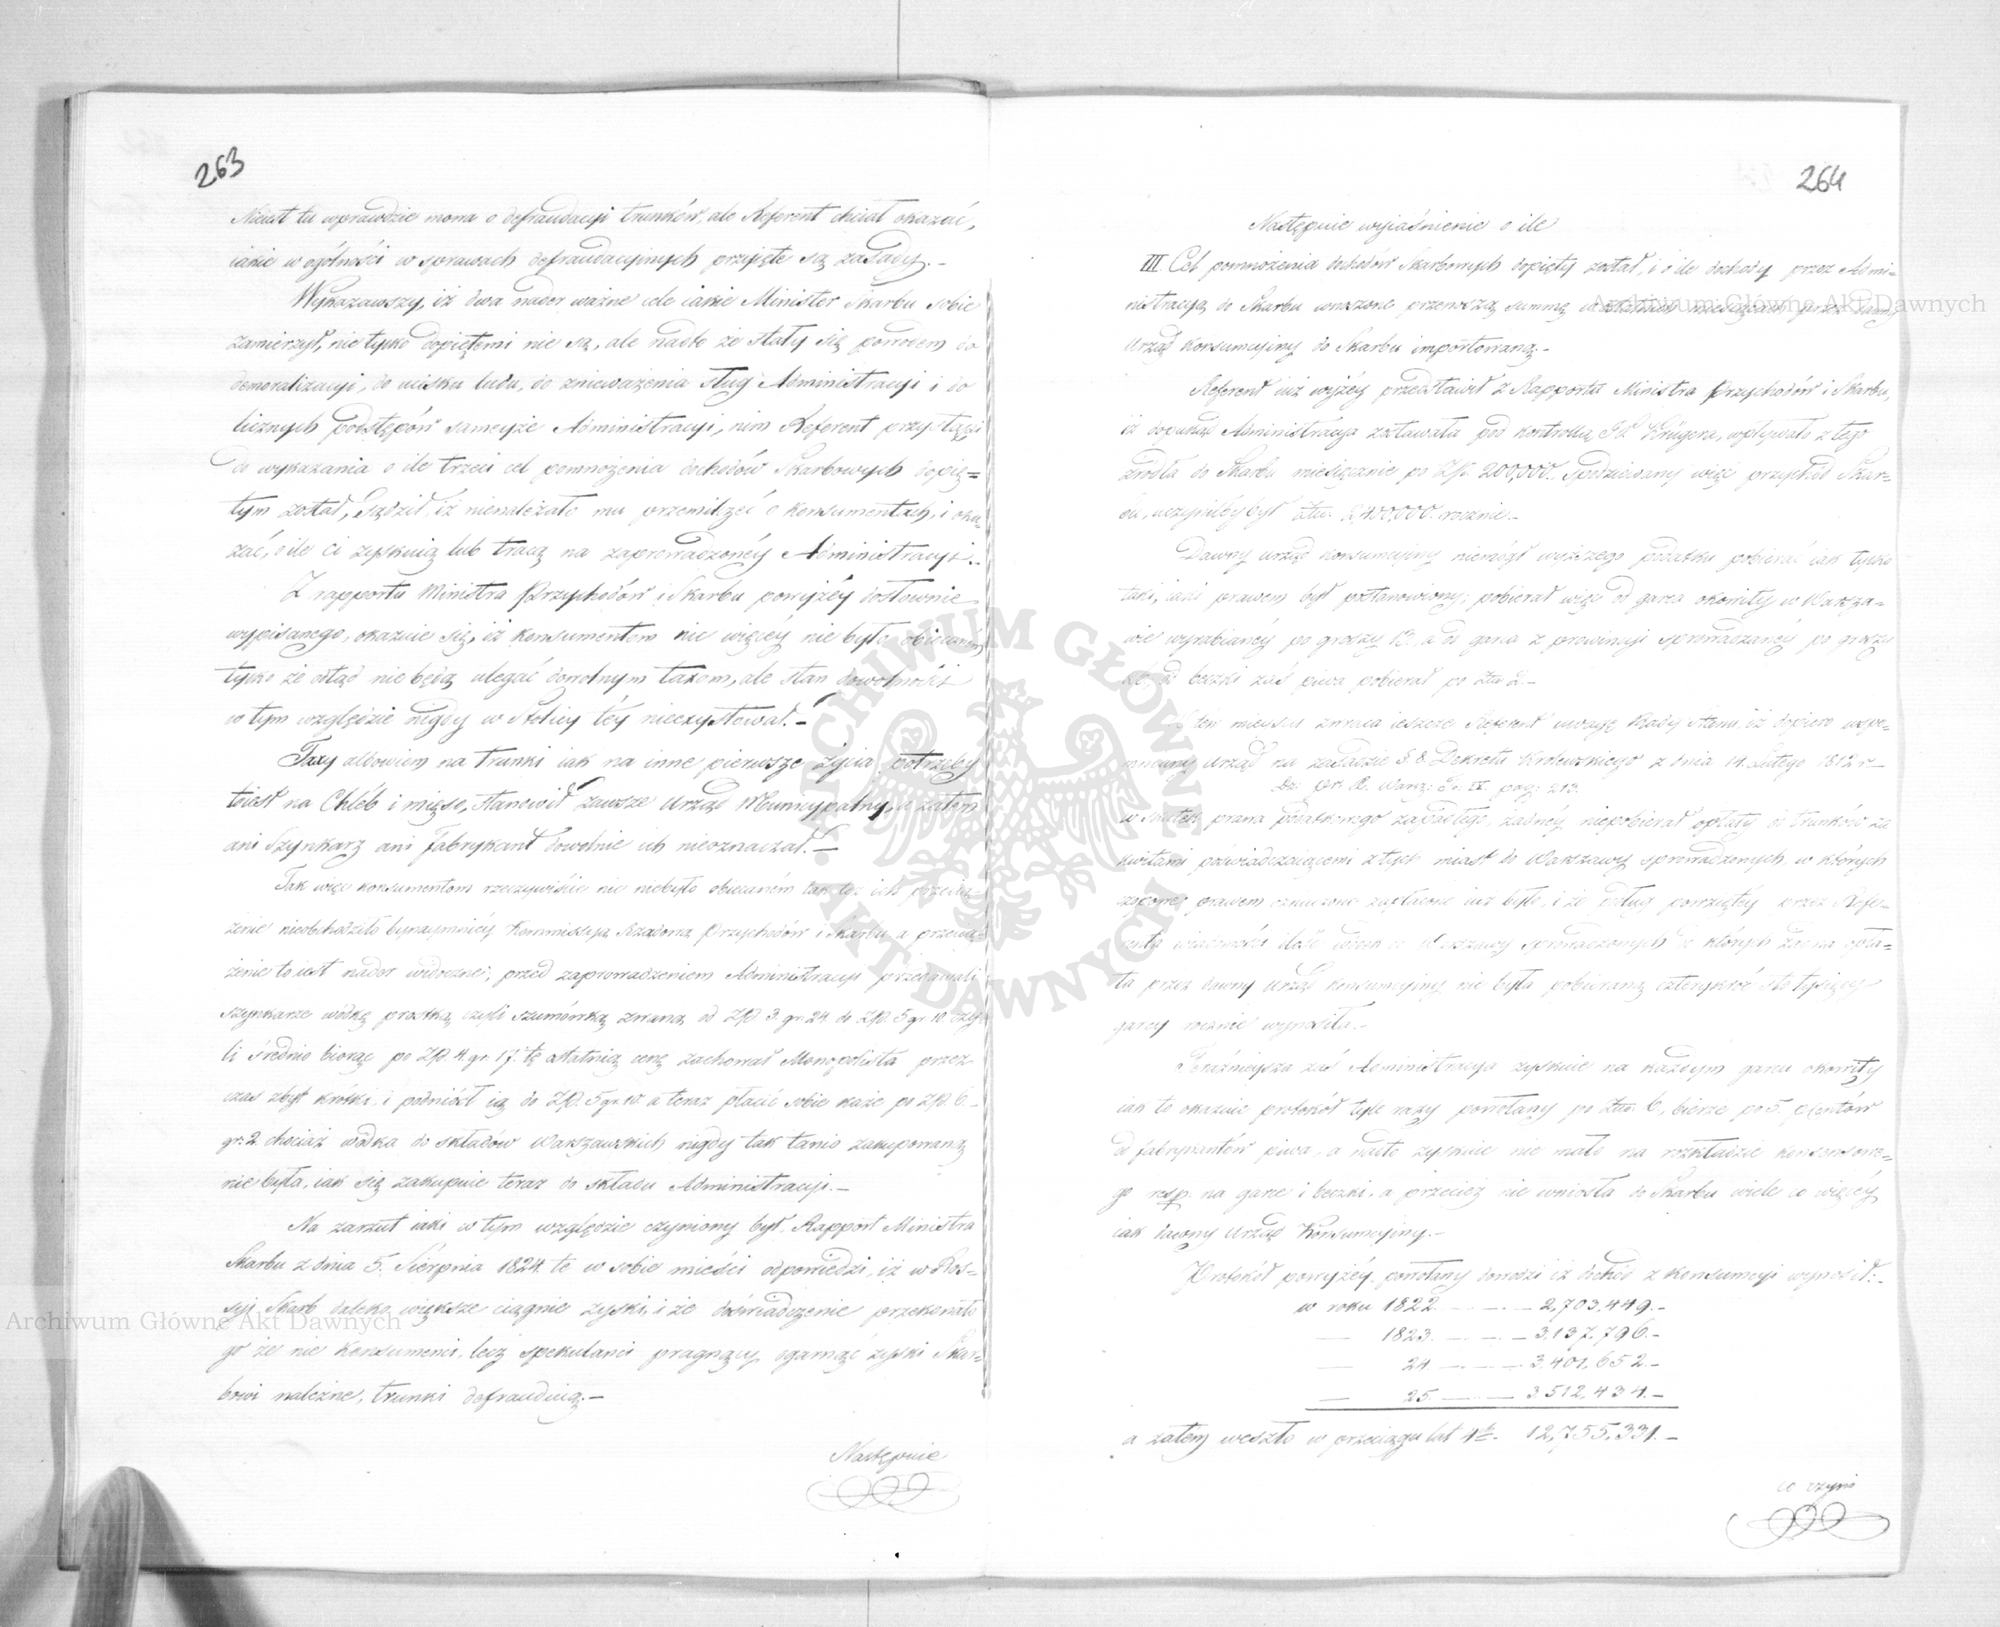 263
Nieiest tu wprawdzie mowa o defraudacyi trunków, ale Referent chciał okazać,
iakie w ogólności w sprawach defraudacyinych przyięte są zasady.–
Wykazawszy, iż dwa nader ważne cele iakie Minister Skarbu sobie
zamierzył, nie tylko dopiętemi nie są, ale nadto że stały się powodem do
demoralizacyi, do ucisku ludu, do znieważenia sług Administracyi i do
licznych podstępów sameyże Administracyi, nim Referent przystąpi
do wykazania o ile trzeci cel pomnożenia dochodów Skarbowych dopię=
tym został, sądził, iż nienależało mu przemilczeć o konsumentach, i oka=
zać, o ile ci zyskuią lub tracą na zaprowadzonéy Administracyi.–
Z rapportu Ministra Przychodów i Skarbu powyżéy dosłownie
wypisanego, okazuie się, iż konsumentom nic więcéy nie było obiecaném
tylko że odtąd nie będą ulegać dowolnym taxom, ale stan dowolności
w tym względzie nigdy w Stolicy téy nieexystował.–
Taxy albowiem na trunki iak na inne pierwsze życia potrzeby
toiest na Chléb i mięso, stanowił zawsze Urząd Municypalny, a zatem
ani Szynkarz ani Fabrykant dowolnie ich nieoznaczał.–
Tak więc konsumentom rzeczywiście nic niebyło obiecaném tak też ich przecią=
żenie nieobchodziło bynaymniéy Kommissyą Rządową Przychodów i Skarbu a przecią=
żenie to iest nader widoczne; przed zaprowadzeniem Administracyi przedawali
szynkarze wódkę prostką czyli szumówką zwaną od Złp. 3. gr. 24. do Złp. 5 gr. 10. czy=
li średnio biorąc po Złp. 4. gr. 17. tę ostatnią cenę zachował Monopolista przez
czas zbyt krótki i podniósł ią do Złp. 5 gr. 10. a teraz płacić sobie każe po Złp. 6.–
gr: 2 chociaż wódka do składów Warszawskich nigdy tak tanio zakupowaną
nie była, iak się zakupuie teraz do składu Administracyi.–
Na zarzut iaki w tym względzie czyniony był, Rapport Ministra
Skarbu z dnia 5. Sierpnia 1824. te w sobie mieści odpowiedzi, iż w Ros=
syi Skarb daleko większe ciągnie zyski, i że doświadczenie przekonało
go że nie Konsumenci, lecz spekulanci pragnący ogarnąć zyski Skar=
bowi należne, trunki defrauduią.–
Następnie
264
Następnie wyiaśnienie o ile
III. Cel pomnożenia dochodów Skarbowych dopięty został, i o ile dochody przez Admi=
nistracyą do Skarbu wnoszone przenoszą summę w ostatnich miesiącach przez dawny
Urząd Konsumcyiny do Skarbu importowaną.–
Referent iuż wyżéy przedstawił z Rapportu Ministra Przychodów i Skarbu,
iż dopokąd Administracya zostawała pod kontrollą Krügera, wpływało z tego
źródła do Skarbu miesięcznie po Złp. 200,000. spodziewany więc przychód Skar=
bu, uczyniłby był Złtu. 2,400,000. rocznie.–
Dawny urząd konsumcyiny niemógł wyższego podatku pobierać iak tylko
taki, iaki prawem był postanowiony; pobierał więc od garca okowity w Warsza=
wie wyrabianéy po groszy 12. a od garca z prowincyi sprowadzanéy po groszy
od beczki zaś piwa pobierał po Złtu 2.–
W tém mieyscu zwraca ieszcze Referent uwagę Rady Stanu, iż dopiero wspo=
mniony urząd na zasadzie §. 8. Dekretu Królewskiego z dnia 14. Lutego 1812 r–
Dz: Pr: X. Warsz: T. IV. pag: 213.
w skutek prawa podatkowego zapadłego, żadnéy niepobierał opłaty od trunków za
kwitami poświadczaiącemi z tych miast do Warszawy sprowadzonych w których
czopowe prawem oznaczone zapłacone iuż było, i że podług powziętéy przez Refe=
renta wiadomości ilość wódek do Warszawy sprowadzonych od których żadna opła=
ta przez dawny Urząd Konsumcyiny nie była pobieraną czterykroć sto tysięcy
garcy rocznie wynosiła.–
Teraźnieysza zaś Administracya zyskuie na każdym garcu okowity
iak to okazuie protokół tyle razy powołany po Złtu 6, bierze po 5. procentów
od fabrykantów piwa, a nadto zyskuie nie mało na rozkładzie konsensowe=
go resp. na garce i beczki, a przecież nie wniosła do Skarbu wiele co więcéy
iak dawny Urząd Konsumcyiny.–
Protokół powyżéy powołany dowodzi iż dochód z konsumcyi wynosił:–
w roku 1822. – – – 2,703,449.–
— 1823. – – – 3,137,796.–
— 24 – – – 3,401,652.–
— 25. – – – 3,512,434.–
a zatém weszło w przeciągu lat 4ch. 12,755,331.–
co czyni
Archiwum Główne Akt Dawnych
Archiwum Główne Akt Dawnych
ARCHIWUM GŁÓWNE
AKT DAWNYCH